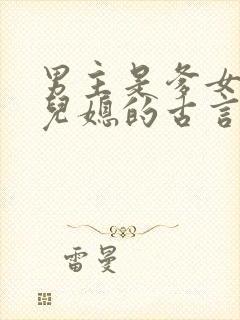 男主是爹女
兒媳的古言
雷曼